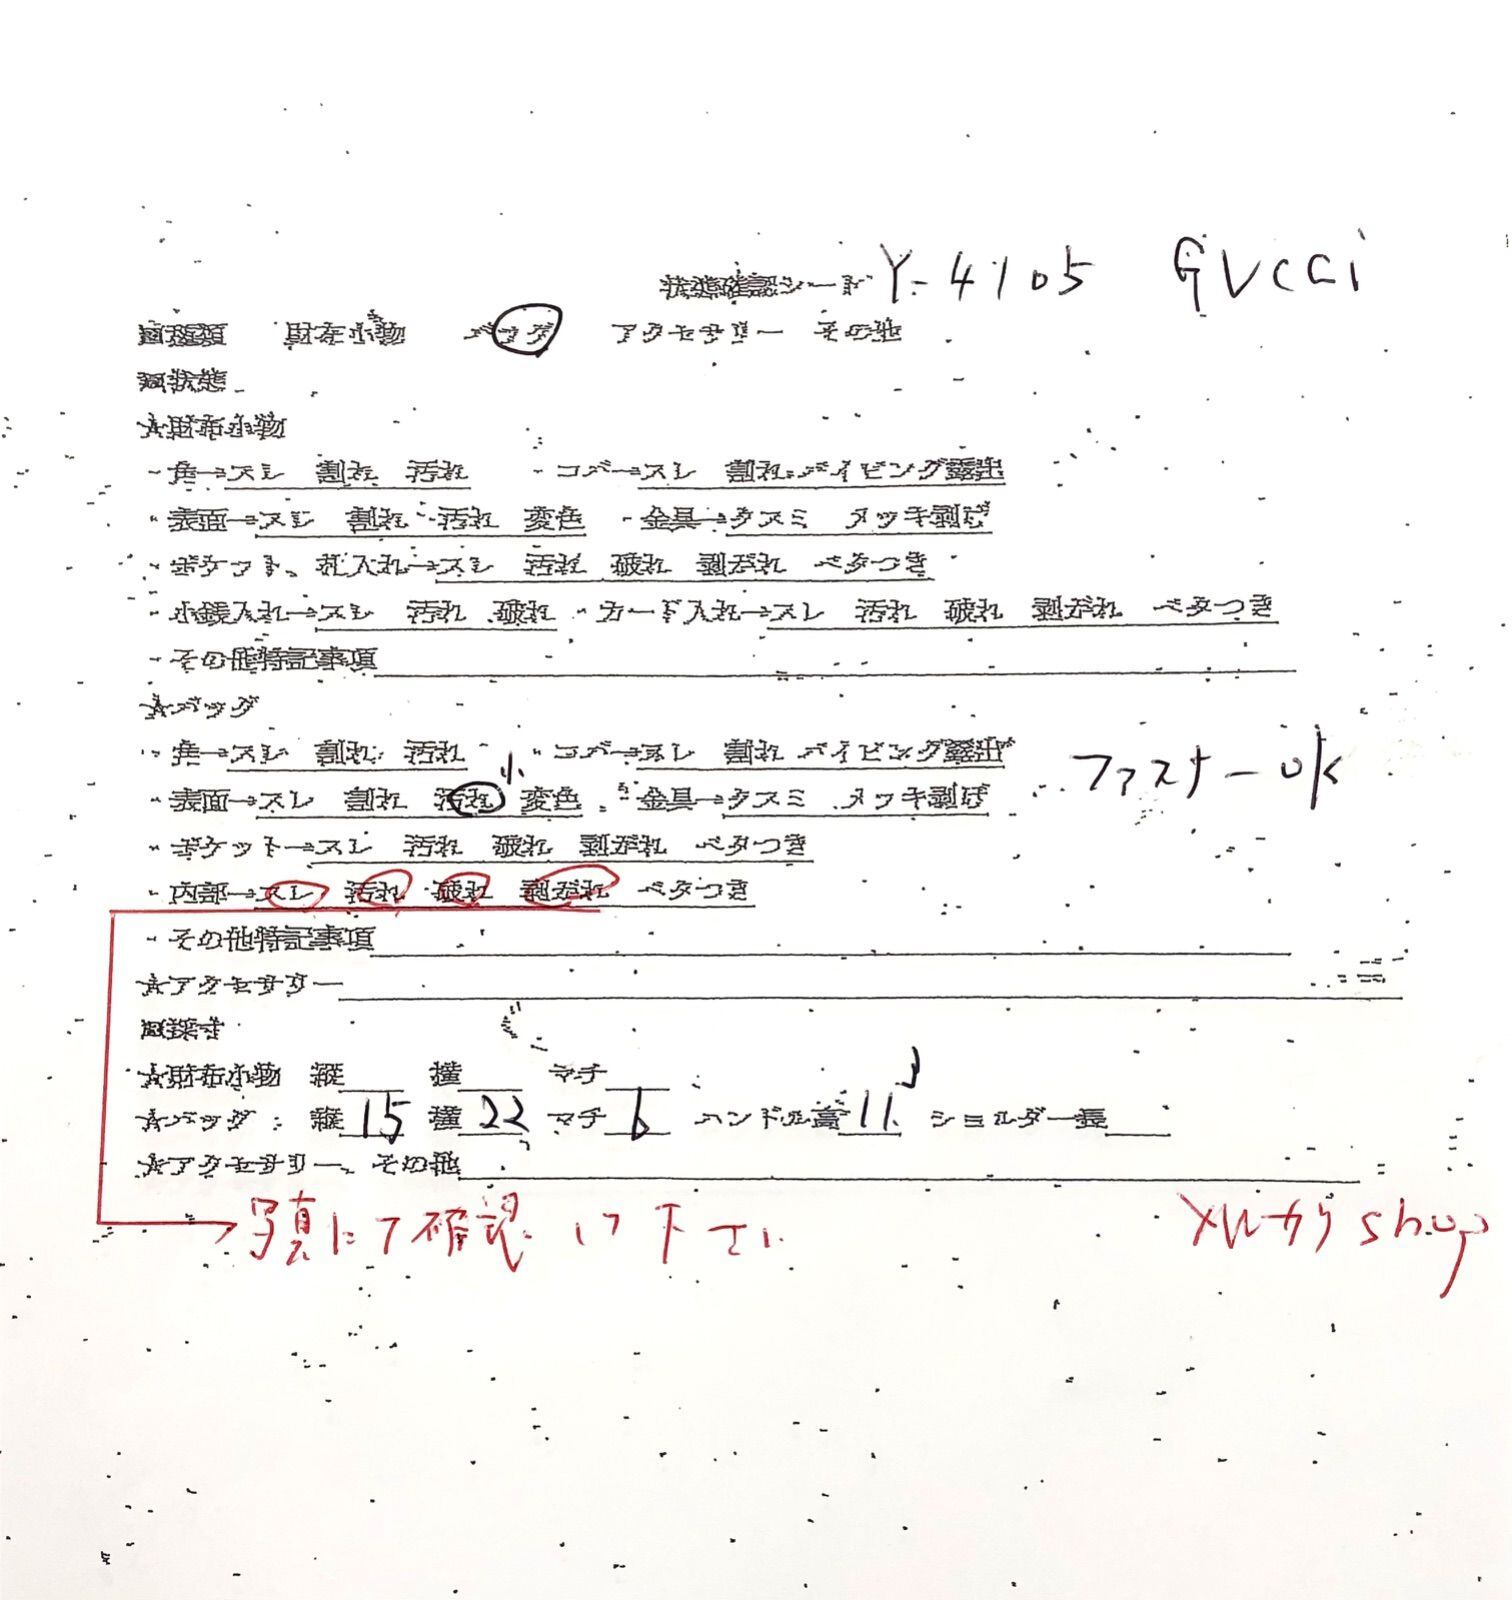 状態確認シート Y-4105 GUCCI
□種類 財布小物 バッグ アクセサリー その他
□状態
☆財布小物
・角→スレ 割れ 汚れ ・コバ→スレ 割れ パイピング露出
・表面→スレ 割れ 汚れ 変色 ・金具→クスミ メッキ剥げ
・ポケット、札入れ→スレ 汚れ 破れ 剥がれ ベタつき
・小銭入れ→スレ 汚れ 破れ ・カード入れ→スレ 汚れ 破れ 剥がれ ベタつき
・その他特記事項
☆バッグ
・角→スレ 割れ 汚れ ・コバ→スレ 割れ パイピング露出
・表面→スレ 割れ 汚れ 小 変色 ・金具→クスミ メッキ剥げ ファスナーok
・ポケット→スレ 汚れ 破れ 剥がれ ベタつき
・内部→スレ 汚れ 破れ 剥がれ ベタつき
・その他特記事項
☆アクセサリー
□採寸
☆財布小物 縦 横 マチ
☆バッグ: 縦 15 横 22 マチ 6 ハンドル高 11 ショルダー長
☆アクセサリー、その他
写真にて確認して下さい メルカリshop